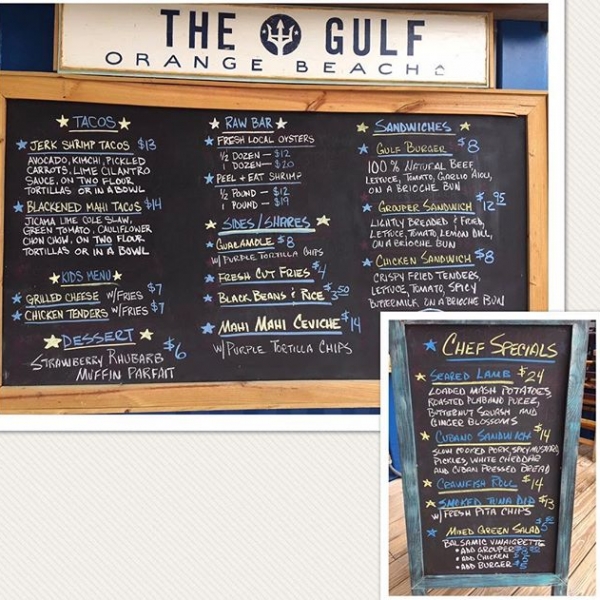 THE GULF
ORANGE BEACH
TACOS
JERK SHRIMP TACOS $13
AVOCADO, KIMCHI, PICKLED
CARROTS, LIME CILANTRO
SAUCE, ON TWO FLOUR
TORTILLAS OR IN A BOWL
BLACKENED MAHI TACOS $14
JICAMA LIME COLE SLAW,
GREEN TOMATO, CAULIFLOWER
CHOW CHOW, ON TWO FLOUR
TORTILLAS OR IN A BOWL
KIDS MENU
GRILLED CHEESE W/FRIES $7
CHICKEN TENDERS W/FRIES $7
DESSERT
STRAWBERRY RHUBARB $6
MUFFIN PARFAIT
RAW BAR
FRESH LOCAL OYSTERS
1/2 DOZEN - $12
1 DOZEN - $20
PEEL & EAT SHRIMP
1/2 POUND - $12
1 POUND - $19
SIDES/SHARES
GUACAMOLE $8
W/PURPLE TORTILLA CHIPS
FRESH CUT FRIES $4
BLACK BEANS & RICE $3.50
MAHI MAHI CEVICHE $14
W/PURPLE TORTILLA CHIPS
SANDWICHES
GULF BURGER $8
100% NATURAL BEEF,
LETTUCE, TOMATO, GARLIC AIOLI,
ON A BRIOCHE BUN
GROUPER SANDWICH $12.95
LIGHTLY BREADED & FRIED,
LETTUCE, TOMATO, LEMON DILL,
ON A BRIOCHE BUN
CHICKEN SANDWICH $8
CRISPY FRIED TENDERS,
LETTUCE, TOMATO, SPICY
BUTTERMILK, ON A BRIOCHE BUN
CHEF SPECIALS
SEARED LAMB $24
LOADED MASH POTATOES,
ROASTED POBLANO PUREE,
BUTTERNUT SQUASH AND
GINGER BLOSSOMS
CUBANO SANDWICH $14
SLOW COOKED PORK, SPICY MUSTARD,
PICKLES, WHITE CHEDDAR
AND CUBAN PRESSED BREAD
CRAWFISH ROLL $14
SMOKED TUNA DIP $13
W/FRESH PITA CHIPS
MIXED GREEN SALAD
BALSAMIC VINAIGRETTE
• ADD GROUPER
• ADD CHICKEN
• ADD BURGER